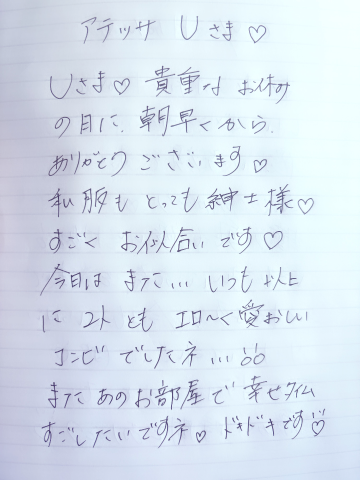 アテッサ Uさま♡
Uさま♡ 貴重な お休み
の日に、朝早くから、
ありがとう ございます♡
私服も とっても 紳士様♡
すごく お似合い です♡
今日は また... いつも 以上
に 2人 とも エロ〜く 愛おしい
コンビ でしたネ...
また あの お部屋で 幸せタイム
すごしたいですネ♡ ドキドキです♡